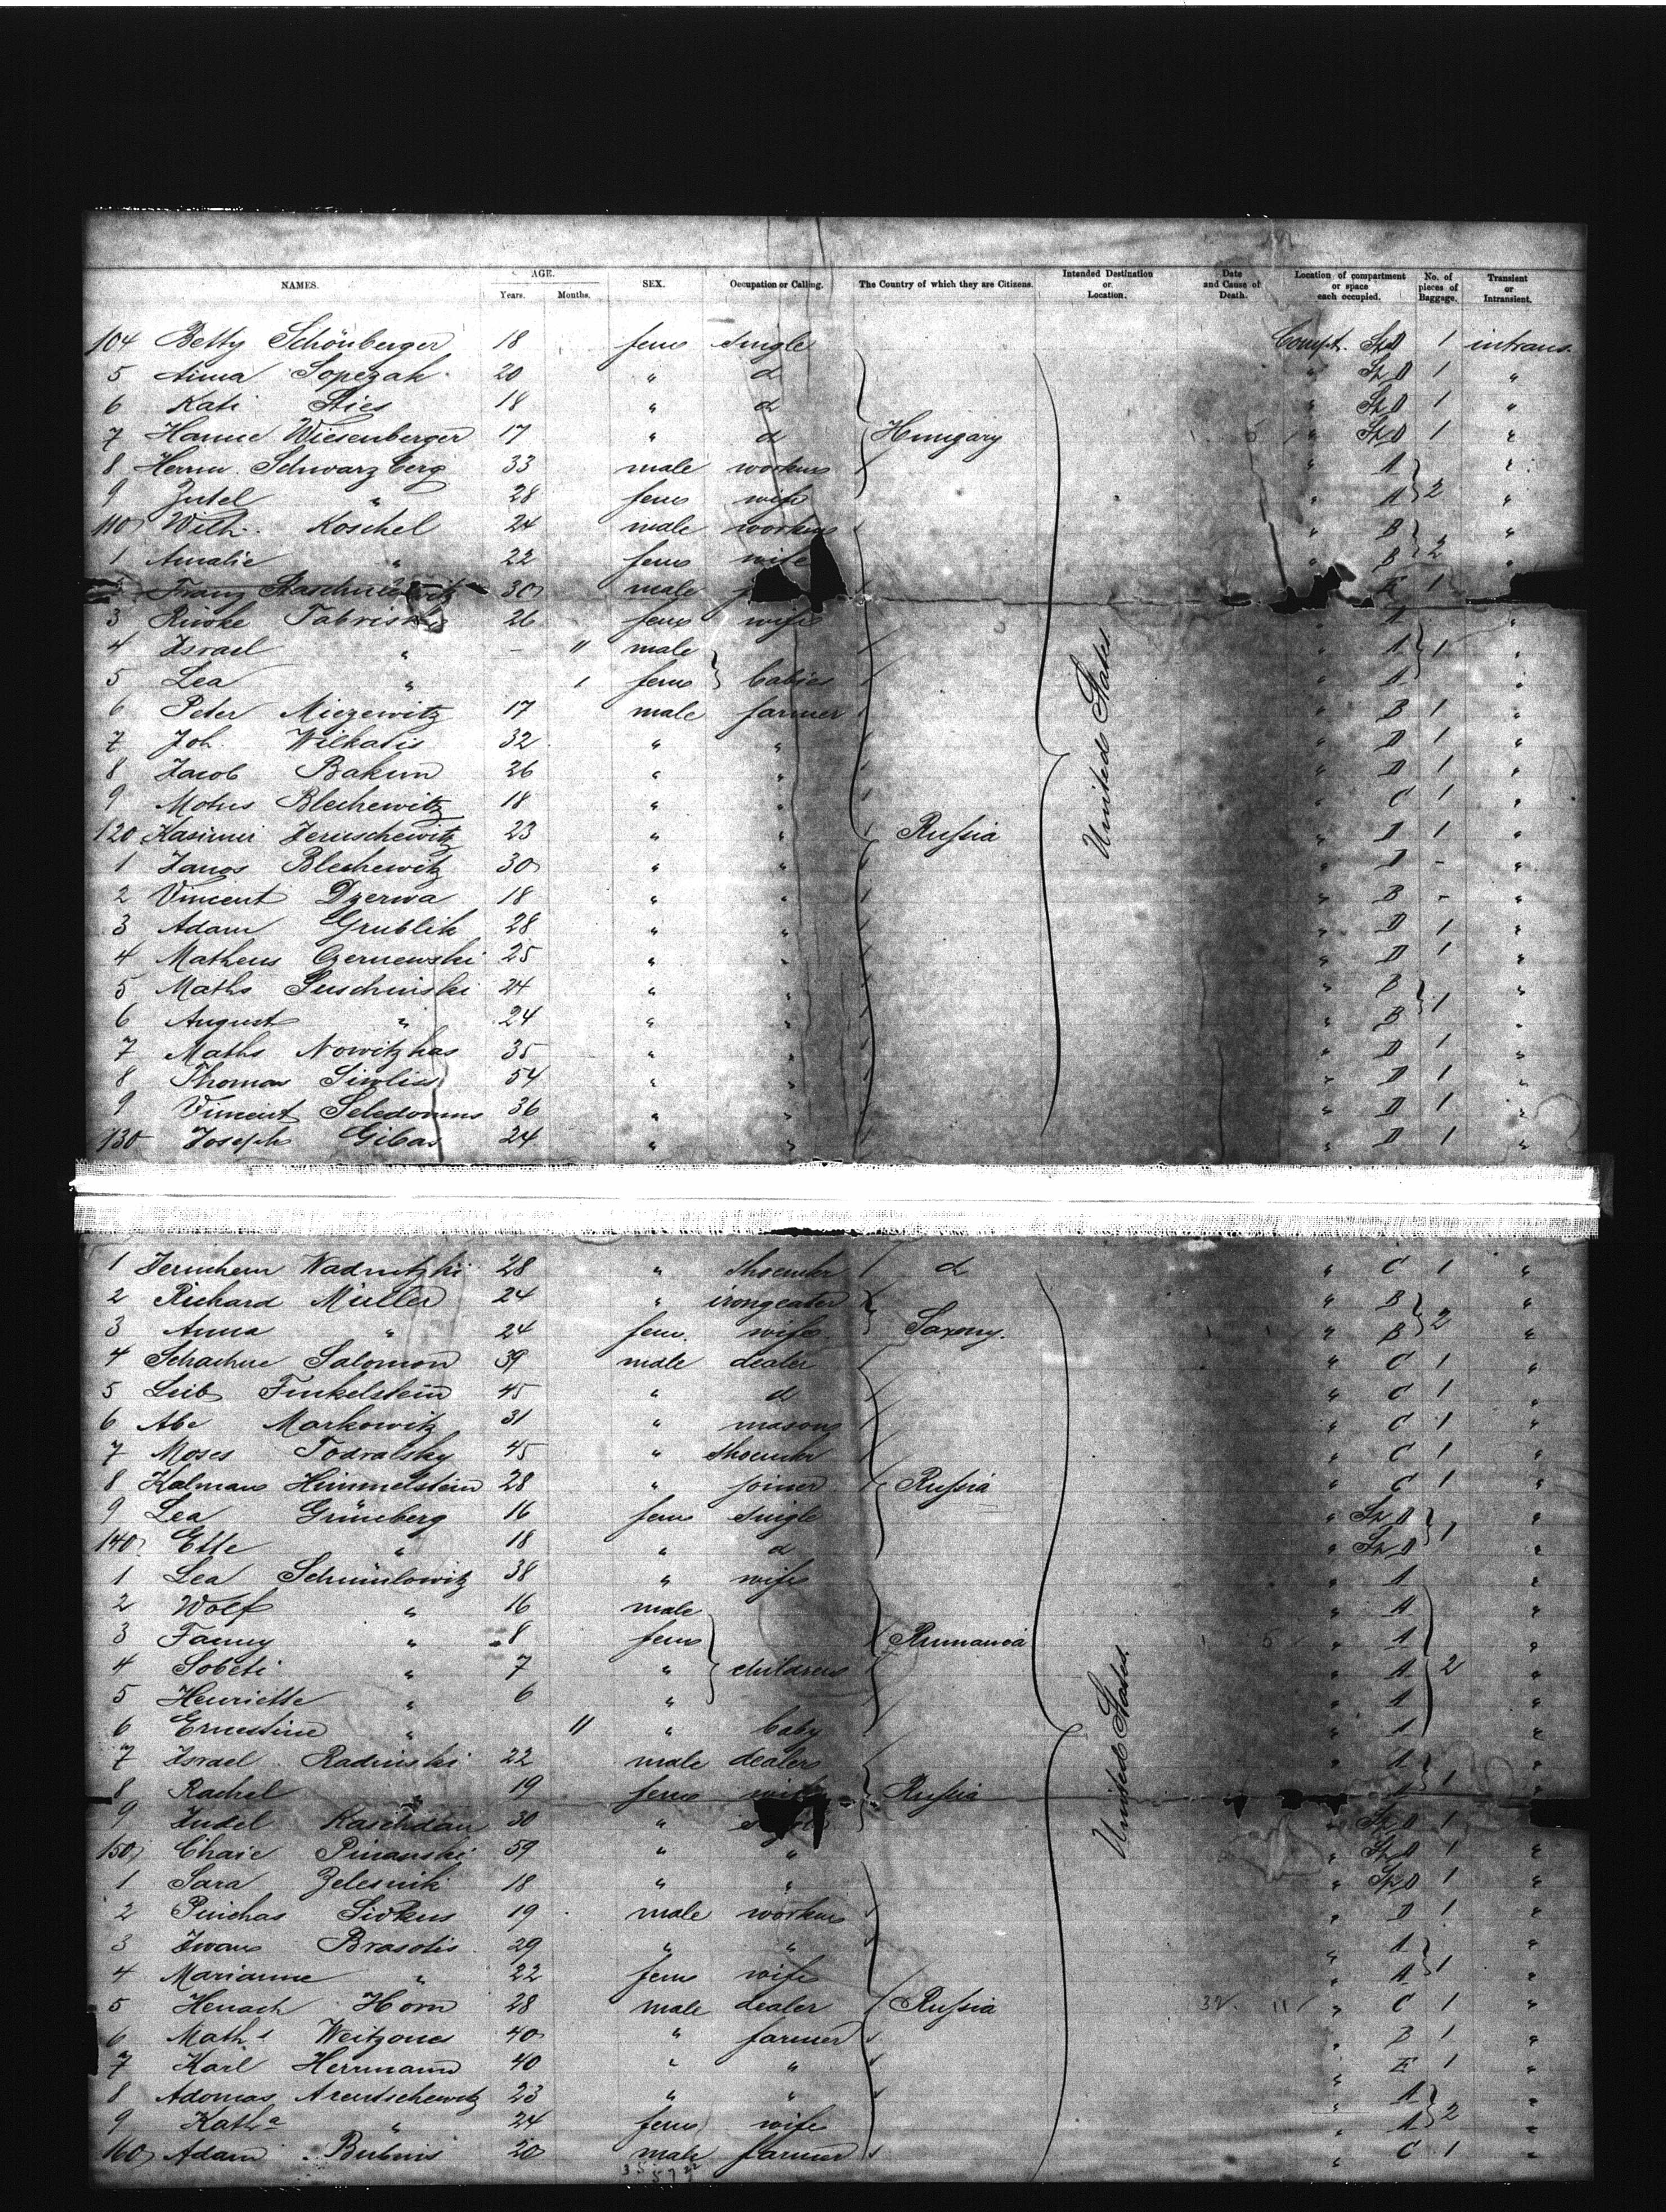 NAMES. AGE. Years. Months. SEX. Occupation or Calling. The Country of which they are Citizens. Intended Destination or Location. Date and Cause of Death. Location of compartment or space each occupied. No. of pieces of Baggage. Transient or Intransient.
104 Betty Schönberger 18 fem single Compt. Sp D 1 intrans.
5 Anna Sopezak 20 " d " Sp D 1 "
6 Kati Sties 18 " d " Sp D 1 "
7 Hanne Wiesenberger 17 " d Hungary " Sp D 1 "
8 Herm. Schwarzberg 33 male workm " A "
9 Zutel " 28 fem wife " A 2 "
110 Wilh. Koschel 24 male workm " B "
1 Amalie " 22 fem wife " B 2 "
Franz 30 male E 1
3 Riwke Fabriski 26 fem wife " A "
4 Israel " – 11 male " A 1 "
5 Lea " 1 fem babies " A "
6 Peter Miezewitz 17 male farmer " B 1 "
7 Joh. Wilkatis 32 " " " D 1 "
8 Jacob Bakun 26 " " " D 1 "
9 Motus Blechewitz 18 " " " C 1 "
120 Kasimir Jeruschewitz 23 " " Russia United States " D 1 "
1 Janos Blechewitz 30 " " " D – "
2 Vincent Dzerwa 18 " " " B – "
3 Adam Grublik 28 " " " D 1 "
4 Matheus Czernewski 25 " " " D 1 "
5 Maths Suschinski 24 " " " B "
6 August " 24 " " " B 1 "
7 Maths Nowitzkas 35 " " " D 1 "
8 Thomas Siwliss 54 " " " D 1 "
9 Vincent 36 " " " D 1 "
130 Joseph Gibas 24 " " " D 1 "
1 Jeruchem Wadnitzki 28 " shoemkr d " C 1 "
2 Richard Müller 24 " " B "
3 Anna " 24 fem. wife Saxony. " B 2 "
4 Schachne Salomon 39 male dealer " C 1 "
5 Leib Finkelstein 45 " d " C 1 "
6 Abe Markowitz 31 " mason " C 1 "
7 Moses Todralsky 45 " shoemkr " C 1 "
8 Kalman Himmelstein 28 " joiner Russia " C 1 "
9 Lea Grünberg 16 fem single " Sp D "
140 Ette " 18 " d " Sp D 1 "
1 Lea Schmilowitz 38 " wife " A "
2 Wolf " 16 male " A "
3 Fanny " 8 fem Rumania " A "
4 Sobeti " 7 " children " A 2 "
5 Henriette " 6 " " A "
6 Ernestine " 11 " baby " A "
7 Israel Radinski 22 male dealer United States. " A "
8 Rachel " 19 fem wife Russia " A 1 "
9 Judel Kaschdan 30 " " Sp D 1 "
150 Chaie Pinanski 59 " " " Sp D 1 "
1 Sara Zelesnik 18 " " " Sp D 1 "
2 Pinchas Sidkus 19 male workm " D 1 "
3 Iwan Brasotis 29 " " " A "
4 Marianne " 22 fem wife " A 1 "
5 Henach Horn 28 male dealer Russia " C 1 "
6 Maths Weitzones 40 " farmer " B 1 "
7 Karl Herrmann 40 " " " E 1 "
8 Adomas Arentschewitz 23 " " " A "
9 Katha " 24 fem wife " A 2 "
160 Adam Bubnis 20 male farmer " C 1 "